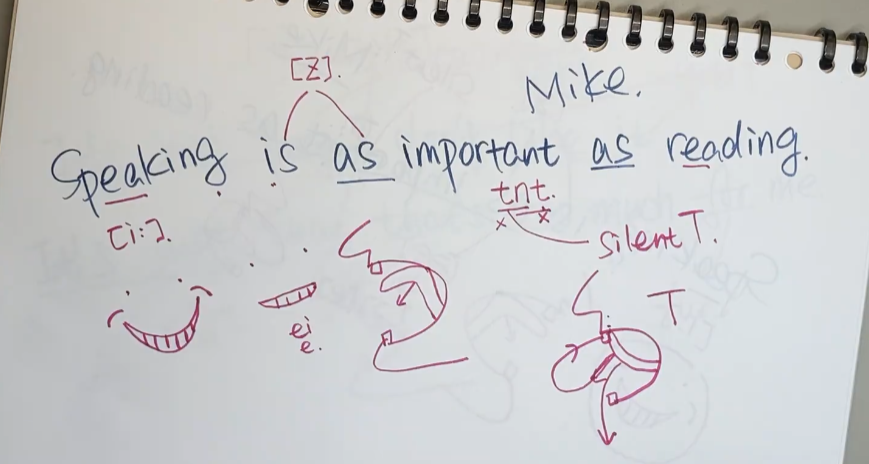 [z].
Mike.
Speaking is as important as reading.
tnt.
x x
[i:].
silent T.
T
ei
e.